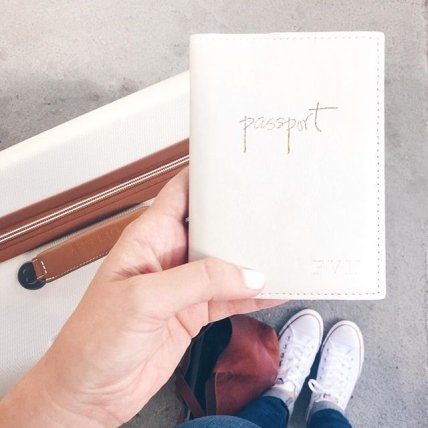 passport
FVI